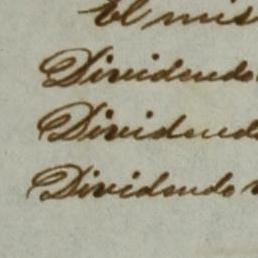 El mis
Dividendo
Dividend
Dividendo